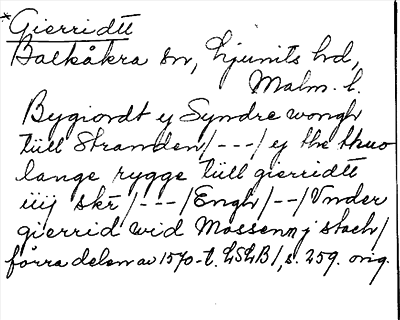 *Gierridtt
Balkåkra sn, Ljunits hd,
Malm. l.
Bygiordt ej Syndre wongh
tüll Stranden/---/ej the thuo
lange rygge tüll gierridtt
iiij skr/---/Engh/--/Vnder
gierrid wid Mossenn j stach/
förra delen av 1570-t. LSLB/, s. 259. orig.